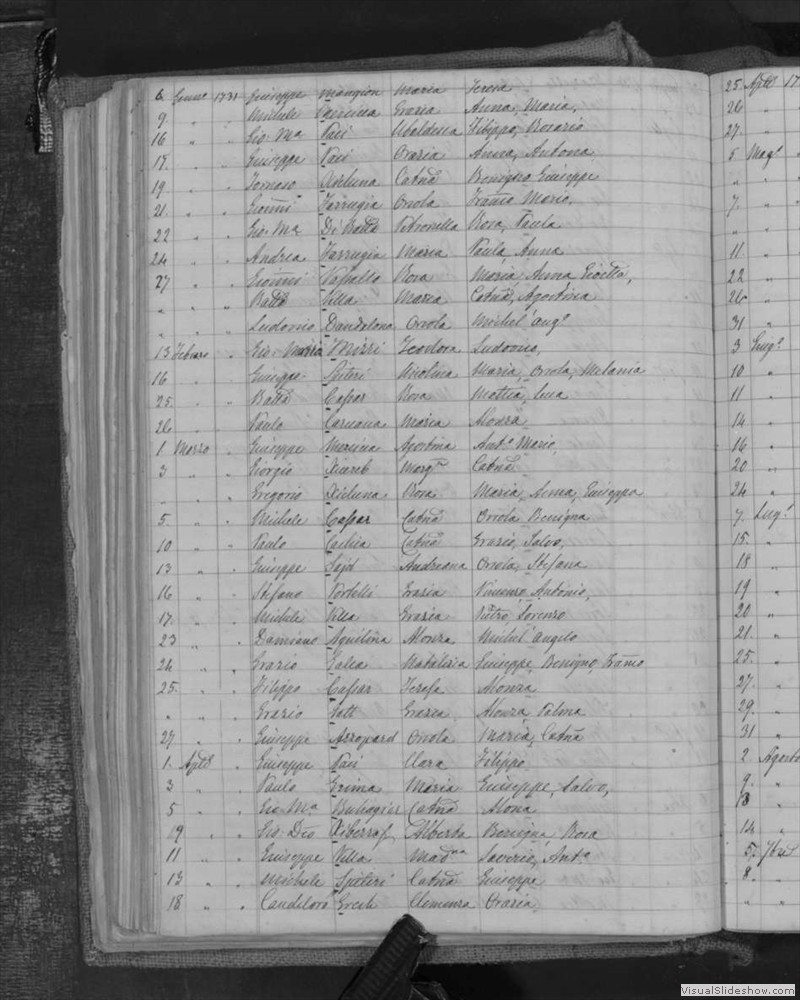 6. Genn.o 1731 Giuseppe Mangion Maria Teresa
9 " " Michele Vancina Grazia Anna, Maria,
16 " " Gio. Ma Ubaldesca Filippo, Rosario
" " Giuseppe Orazia Anna, Antona,
19 " " Catna Benigno Giuseppe
21. " " Gionni Farrugia Oriola Franco Mario,
22 " " Gio. Ma Di Batta Petronella Rosa, Paula
24 " " Andrea Farrugia Maria Paula Anna
27 " " Gionni Vassallo Rosa Maria Anna
" " " Batta Villa Maria Catna, Agostina
" " " Ludovio Dandalona Oriola Michel' Ang.o
13 Febraro " Gio. Maria Mizzi Teodora Ludovico,
16 " " Giuseppe Spiteri Maria, Oriola, Melania
25. " " Batta Caspar Rosa Mattia, Luca
26 " " Paulo Caruana Maria Alonza
1 Marzo " Giuseppe Agostina Ant.o Mario,
3 " " Giorgio Xicereb Marg.a Catna
" " " Gregorio Xiriluna Rosa Maria, Anna, Giuseppa
5. " " Michele Caspar Catna Oriola Benigna
10 " " Paulo Cachia Catna Grazio, Salvo,
13 " " Giuseppe Sajd Andreana Oriola, Stefana
16 " " Stefano Portelli Grazia Vincenzo, Antonio,
17. " " Michele Villa Grazia Pietro, Lorenzo
23 " " Damiano Aquilina Alonza Michel' Angelo
24 " " Grazio Galea Nataliza Giuseppe, Benigno, Franco
25. " " Filippo Caspar Teresa Alonza
" " " Grazio Vatt Grazia Alonza, Palma
27 " " Giuseppe Azzopard Oriola Maria, Catna
1. Aple " Giuseppe Clara Filippo
3 " " Paulo Grima Maria Giuseppe, Salvo,
5 " " Gio. Ma Buhagiar Catna Alona
19 " " Gio. Dio Xiberras Alberta Benigna, Rosa
11 " " Giuseppe Villa Mad.na Saverio, Ant.o
13 " " Michele Spiteri Catna Giuseppe
18 " " Candeloro Grech Clemenza Orazia
25. Aple 17
26 "
27 "
5 Mag.o
" "
7. "
" "
11. "
22 "
26 "
31 "
3 Giug.o
10 "
11 "
14 "
16 "
20 "
24 "
7. Lug.o
15. "
18 "
19 "
20 "
21. "
25. "
27. "
29. "
31 "
2 Agosto
9. "
13 "
14 "
5. 7bre
8. "
" "
VisualSlideshow.com